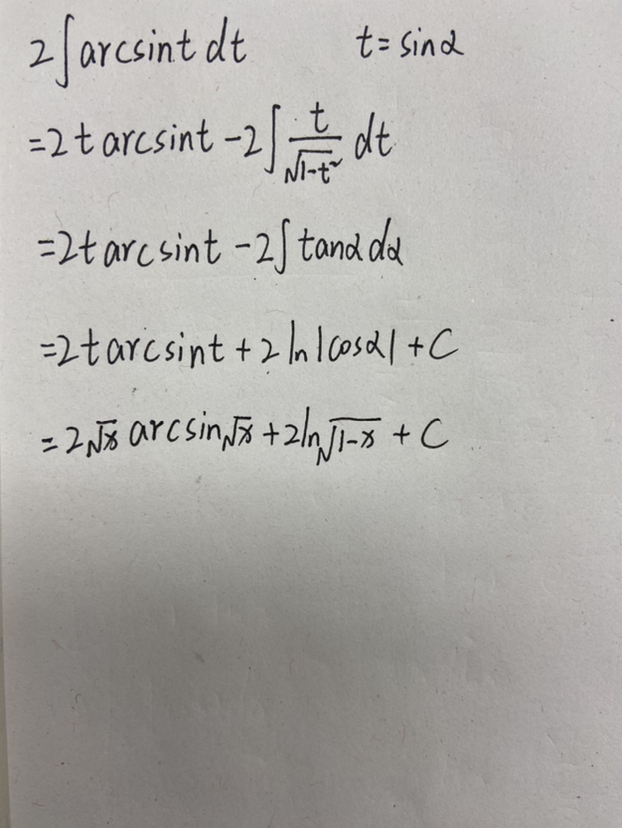 2∫arcsint dt t=sinα
=2t arcsint -2∫ t/√(1-t²) dt
=2t arcsint -2∫tanα dα
=2t arcsint +2 ln|cosα| +C
=2√x arcsin√x +2ln√(1-x) + C